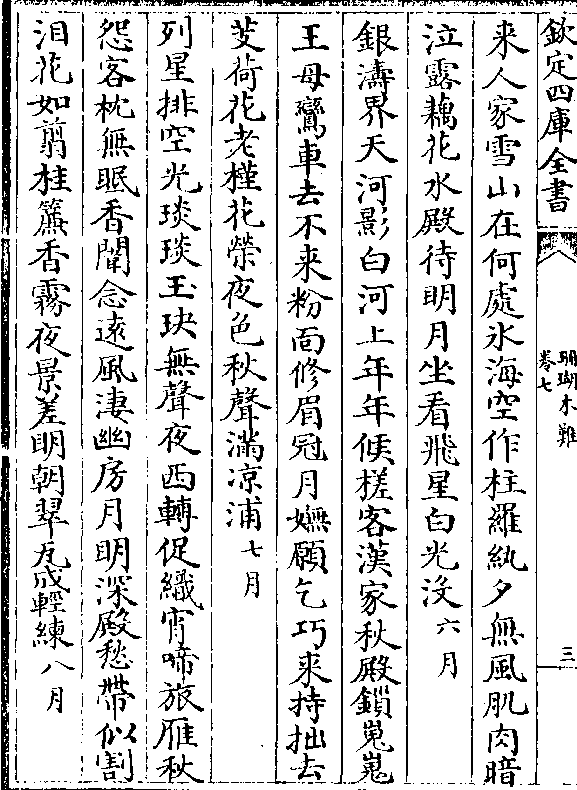 欽定四庫全書
珊瑚木難
卷七
三
来人家雪山在何處氷海空作柱羅紈夕無風肌肉暗
泣露藕花水殿待明月坐看飛星白光没六月
銀濤界天河影白河上年年候槎客漢家秋殿鎖嵬嵬
王母鸞車去不来粉面修眉冠月嫵願乞巧来持拙去
芰荷花老槿花榮夜色秋聲滿凉浦七月
列星排空光琰琰玉玦無聲夜西轉促織宵啼旅雁秋
怨客枕無眠香閨念遠風淒幽房月明深殿愁帶似割
泪花如翦桂簾香霧夜景差明朝翠瓦成輕練八月